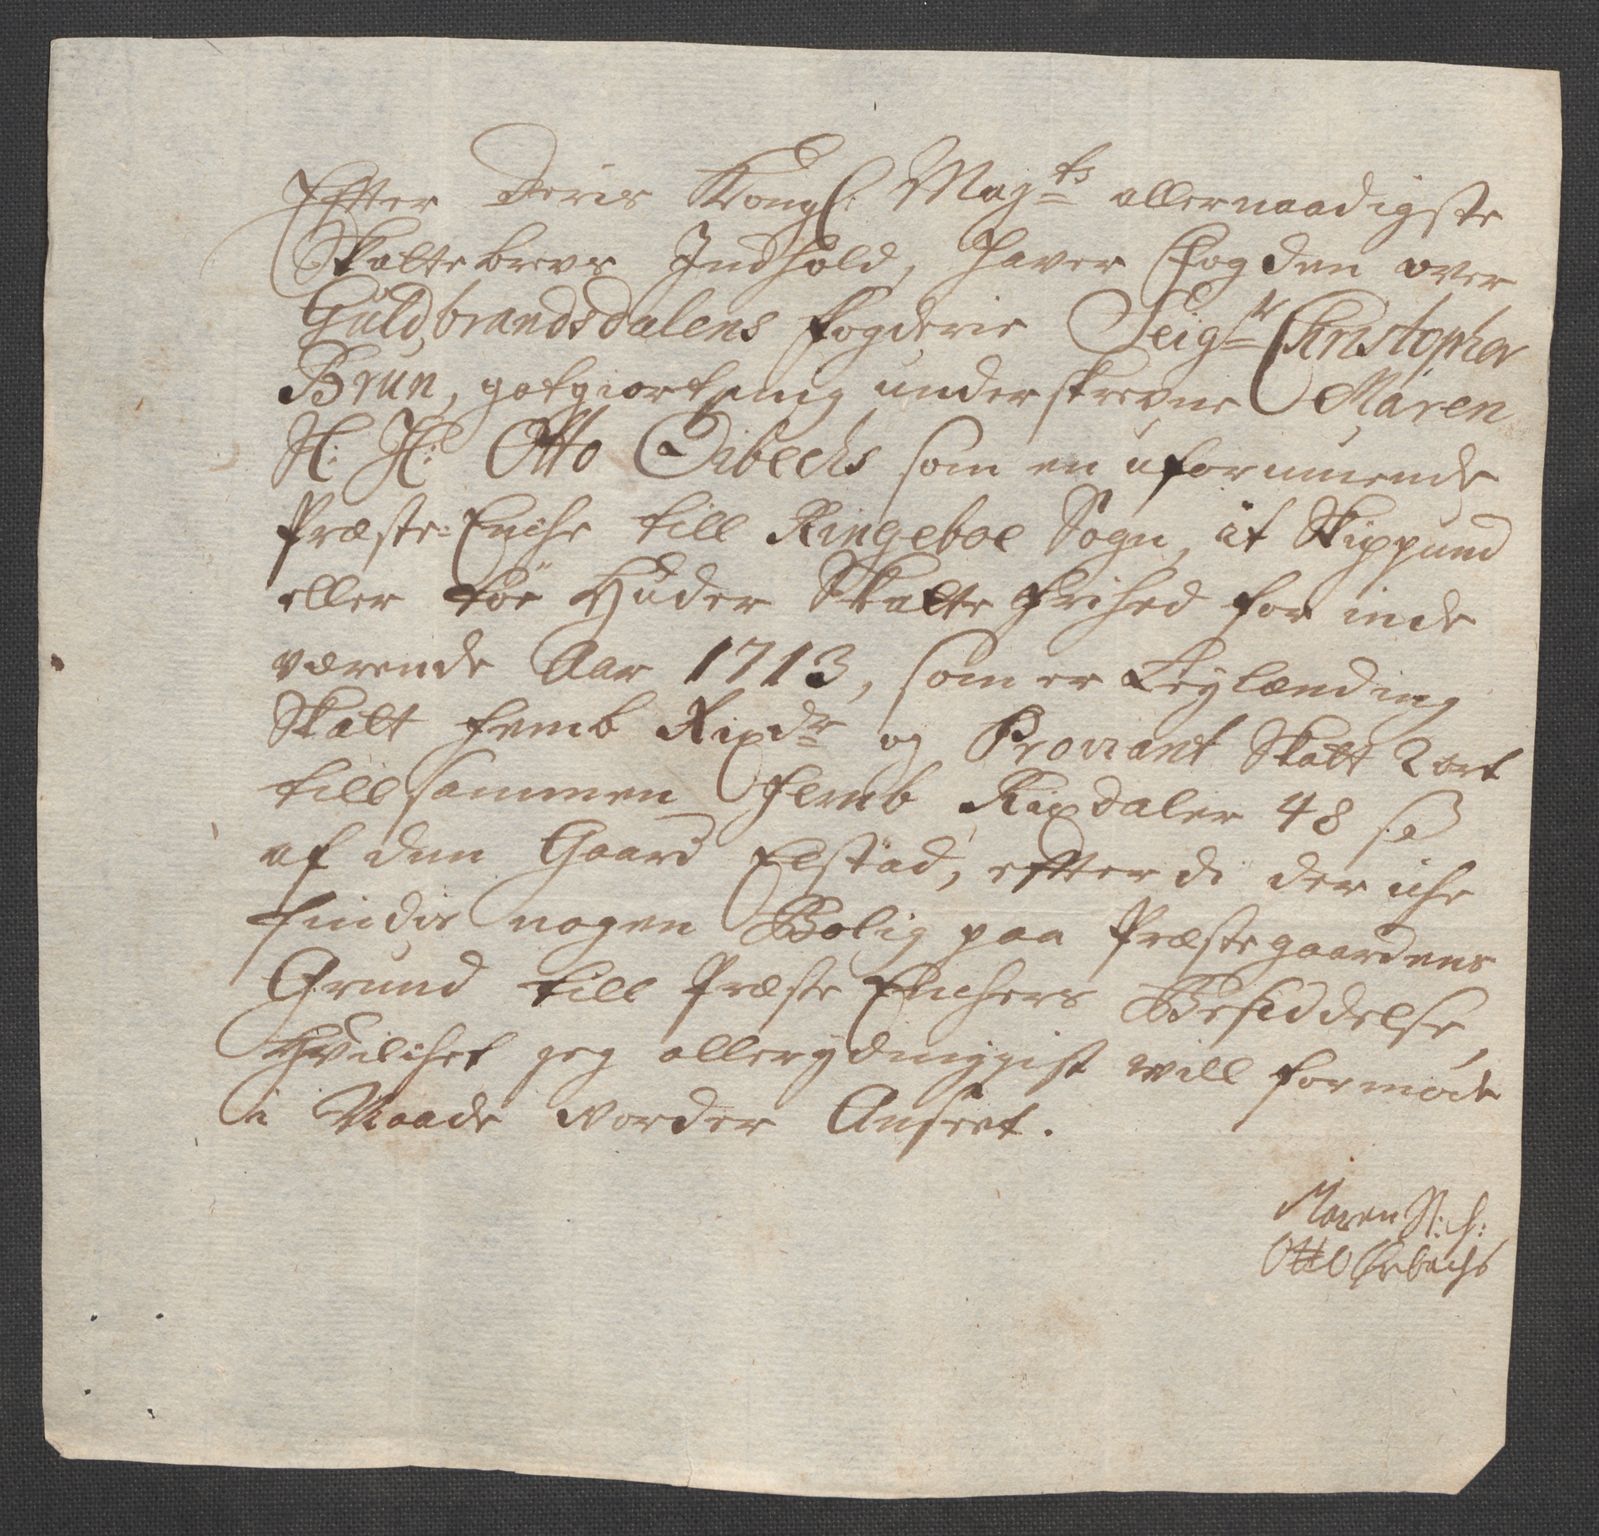 Efter Deris Kongl: Mag:ts allernaadigste
Skattebrevs Indhold, haver Fogden over
Guldbrandsdalens fogderie Seig:r Christopher
Brun, gotgiort mig underskrevne Maren
Sl: Hr: Otto Dibechs som en uformuende
Præste-Enche till Ringeboe Sogn, it Skippund
eller toe Huder Skatte frihed for inde
værende Aar 1713, som er Leylænding
Skatt femb Rixdr og Proviant Skatt 2 ort
tillsammen femb Rixdaler 48 s
af den Gaard Elstad, efterdi der iche
findis nogen Bolig paa Præstegaardens
Grund till Præste Enchers Besiddelse,
hvilchet jeg allerydmygist will formode
i Naade vorder Anseet.
Maren Sl: H:
Otto